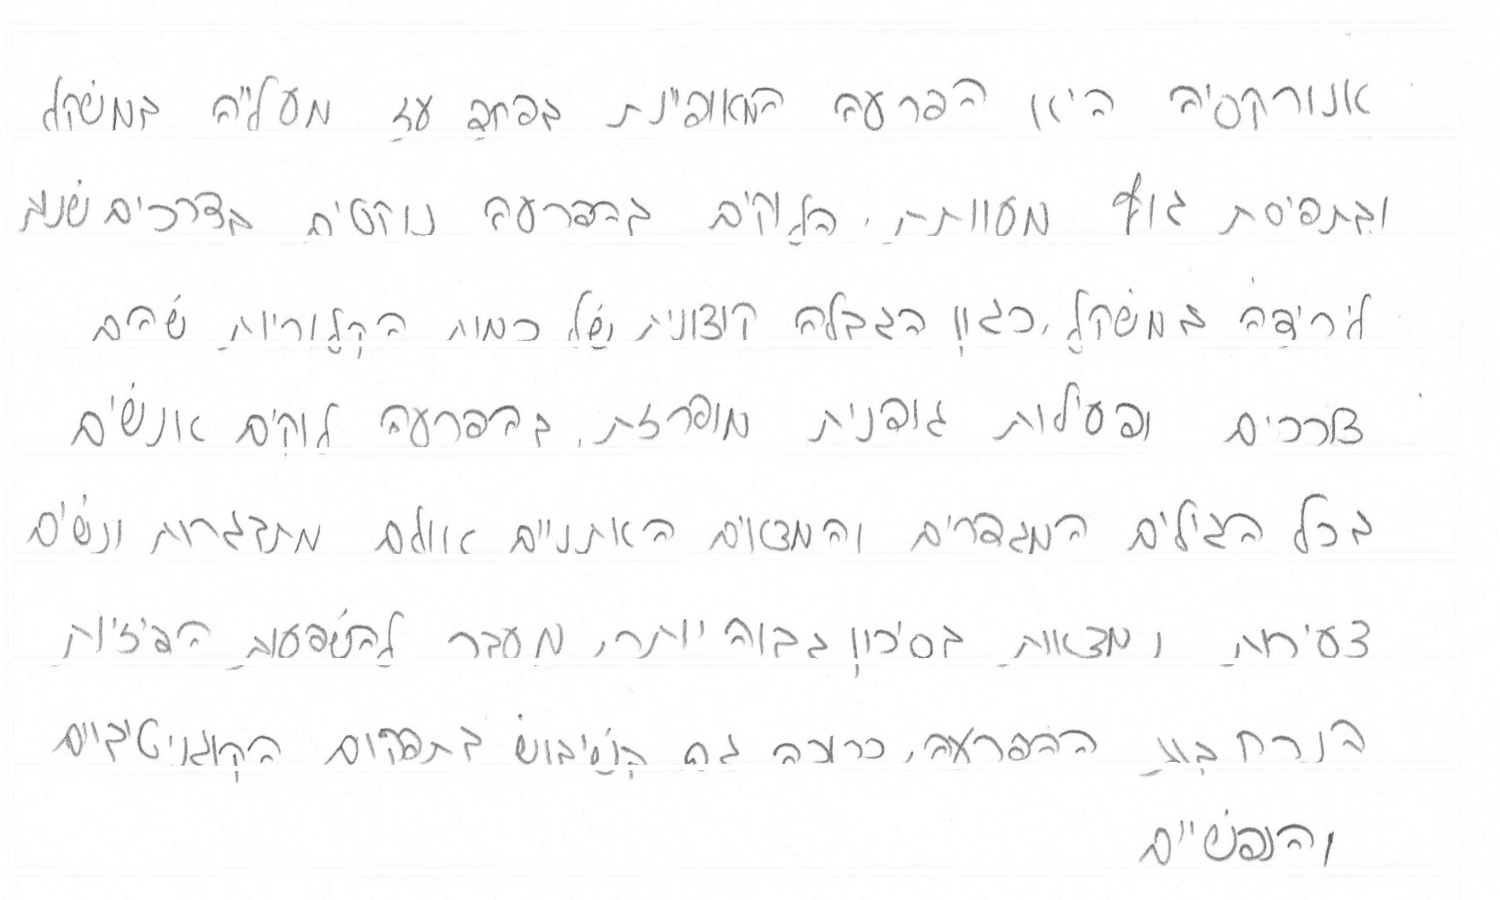 אנורקסיה היא הפרעה המאופיינת בפחד עז מעליה במשקל
ובתפיסת גוף מעוותת, הלוקים בהפרעה נוקטים בדרכים שונות
לירידה במשקל, כגון הגבלה קיצונית של כמות הקלוריות שהם
צורכים ופעילות גופנית מופרזת, בהפרעה לוקים אנשים
בכל הגילים המגדרים והמצאים האתניים אולם מתבגרות ונשים
צעירות נמצאות בסיכון גבוה יותר, מעבר להשפעות הפיזיות
הנרחבות ההפרעה, כרוכה גם בשיבוש בתפקום הקוגניטיביים
והנפשיים